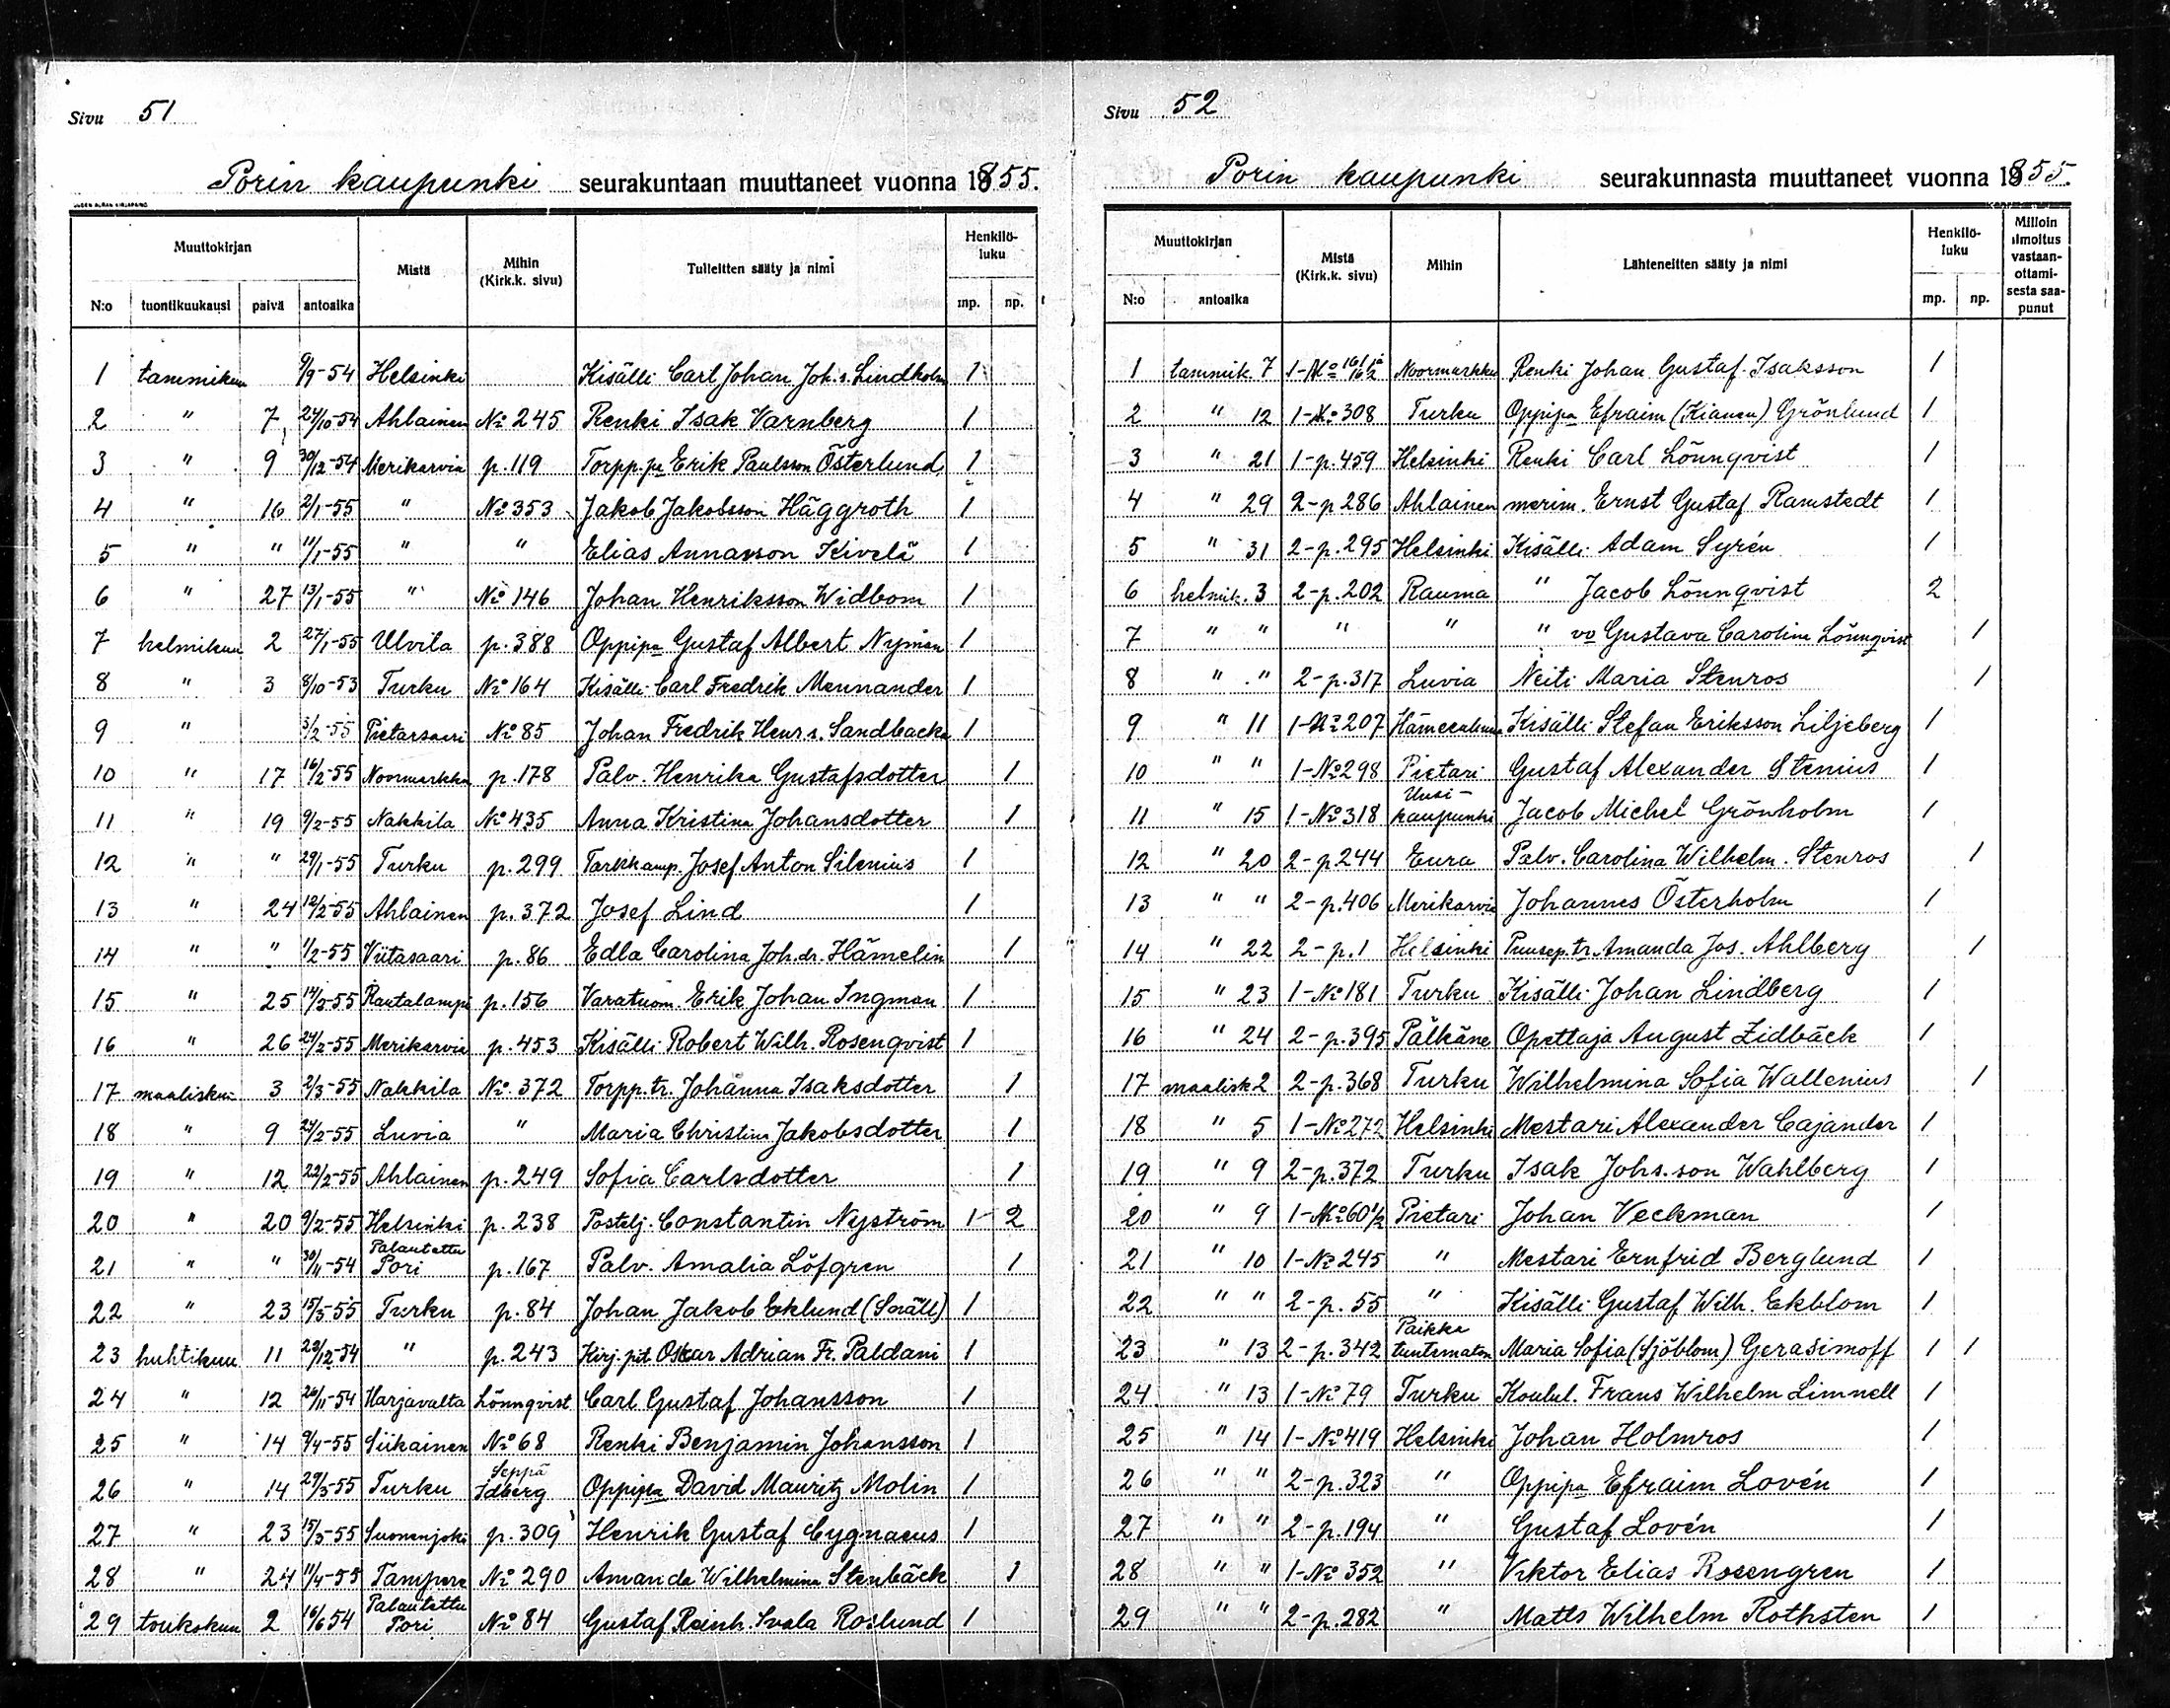 Sivu 51
Porin kaupunki seurakuntaan muuttaneet vuonna 1855.
Muuttokirjan Mistä Mihin (Kirk.k. sivu) Tulleitten sääty ja nimi Henkilö-luku
N:o tuontikuukausi päivä antoaika mp. np.
1 tammikuu 9/9-54 Helsinki Kisälli Carl Johan Joh.s. Lindholm 1
2 " 7 24/10-54 Ahlainen No 245 Renki Isak Varnberg 1
3 " 9 30/12-54 Merikarvia p.119 Torpp.pa Erik Paulsson Österlund 1
4 " 16 2/1-55 " No 353 Jakob Jakobsson Häggroth 1
5 " " 11/1-55 " " Elias Annasson Kivelä 1
6 " 27 13/1-55 " No 146 Johan Henriksson Widbom 1
7 helmikuu 2 27/1-55 Ulvila p.388 Oppipa Gustaf Albert Nyman 1
8 " 3 8/10-53 Turku No 164 Kisälli Carl Fredrik Mennander 1
9 " 5/2-55 Pietarsaari No 85 Johan Fredrik Henr s. Sandbacka 1
10 " 17 16/2-55 Noormarkku p.178 Palv. Henrika Gustafsdotter 1
11 " 19 9/2-55 Nakkila No 435 Anna Kristina Johansdotter 1
12 " " 29/1-55 Turku p.299 Tarkkamp. Josef Anton Silenius 1
13 " 24 12/2-55 Ahlainen p.372 Josef Lind 1
14 " " 1/2-55 Viitasaari p.86 Edla Carolina Joh.dr. Hämelin 1
15 " 25 14/2-55 Rautalampi p.156 Varatuom. Erik Johan Ingman 1
16 " 26 24/2-55 Merikarvia p.453 Kisälli Robert Wilh. Rosenqvist 1
17 maaliskuu 3 2/3-55 Nakkila No 372 Torpp.tr. Johanna Isaksdotter 1
18 " 9 24/2-55 Luvia " Maria Christina Jakobsdotter 1
19 " 12 22/2-55 Ahlainen p.249 Sofia Carlsdotter 1
20 " 20 9/2-55 Helsinki p.238 Postilj. Constantin Nyström 1 2
21 " " 30/11-54 Palautettu Pori p.167 Palv. Amalia Löfgren 1
22 " 23 15/3-55 Turku p.84 Johan Jakob Eklund (Snäll) 1
23 huhtikuu 11 28/12-54 " p.243 Kirj.pit. Oskar Adrian Fr. Paldani 1
24 " 12 26/11-54 Harjavalta Lönnqvist Carl Gustaf Johansson 1
25 " 14 9/4-55 Siikainen No 68 Renki Benjamin Johansson 1
26 " 14 29/3-55 Turku Seppä Idberg Oppipa David Mauritz Molin 1
27 " 23 15/3-55 Suonenjoki p.309 Henrik Gustaf Cygnaeus 1
28 " 24 11/4-55 Tampere No 290 Amanda Wilhelmina Stenbäck 1
29 toukokuu 2 16/6 54 Palautettu Pori No 84 Gustaf Reinh. Svala Roslund 1
Sivu 52
Porin kaupunki seurakunnasta muuttaneet vuonna 1855.
Muuttokirjan Mistä (Kirk.k. sivu) Mihin Lähteneitten sääty ja nimi Henkilö-luku Milloin ilmoitus vastaan-ottami-sesta saa-punut
N:o antoaika mp. np.
1 tammik. 7 1-No 161 ja 162 Noormarkku Renki Johan Gustaf Isaksson 1
2 " 12 1-No 308 Turku Oppipa Efraim (Kianen) Grönlund 1
3 " 21 1-p.459 Helsinki Renki Carl Lönnqvist 1
4 " 29 2-p 286 Ahlainen merim. Ernst Gustaf Ramstedt 1
5 " 31 2-p.295 Helsinki Kisälli Adam Syrén 1
6 helmik. 3 2-p.202 Rauma " Jacob Lönnqvist 2
7 " " " " " vo Gustava Carolina Lönnqvist 1
8 " " 2-p.317 Luvia Neiti Maria Stenros 1
9 " 11 1-No 207 Hämeenlinna Kisälli Stefan Eriksson Liljeberg 1
10 " " 1-No 298 Pietari Gustaf Alexander Stenius 1
11 " 15 1-No 318 Uusi-kaupunki Jacob Michel Grönholm 1
12 " 20 2-p.244 Eura Palv. Carolina Wilhelm. Stenros 1
13 " " 2-p.406 Merikarvia Johannes Österholm 1
14 " 22 2-p.1 Helsinki Puusep.tr. Amanda Jos. Ahlberg 1
15 " 23 1-No 181 Turku Kisälli Johan Lindberg 1
16 " 24 2-p.395 Pälkäne Opettaja August Lidbäck 1
17 maalisk 2 2-p.368 Turku Wilhelmina Sofia Wallenius 1
18 " 5 1-No 272 Helsinki Mestari Alexander Cajander 1
19 " 9 2-p.372 Turku Isak Johs.son Wahlberg 1
20 " 9 1-No 60 1/2 Pietari Johan Veckman 1
21 " 10 1-No 245 " Mestari Ernfrid Berglund 1
22 " " 2-p.55 " Kisälli Gustaf Wilh. Ekblom 1
23 " 13 2-p.342 Paikka tuntematon Maria Sofia (Sjöblom) Gerasimoff 1 1
24 " 13 1-No 79 Turku Koulul. Frans Wilhelm Limnell 1
25 " 14 1-No 419 Helsinki Johan Holmros 1
26 " " 2-p.323 " Oppipa Efraim Lovén 1
27 " " 2-p.194 " Gustaf Lovén 1
28 " " 1-No 352 " Viktor Elias Rosengren 1
29 " " 2-p.282 " Matts Wilhelm Rothsten 1